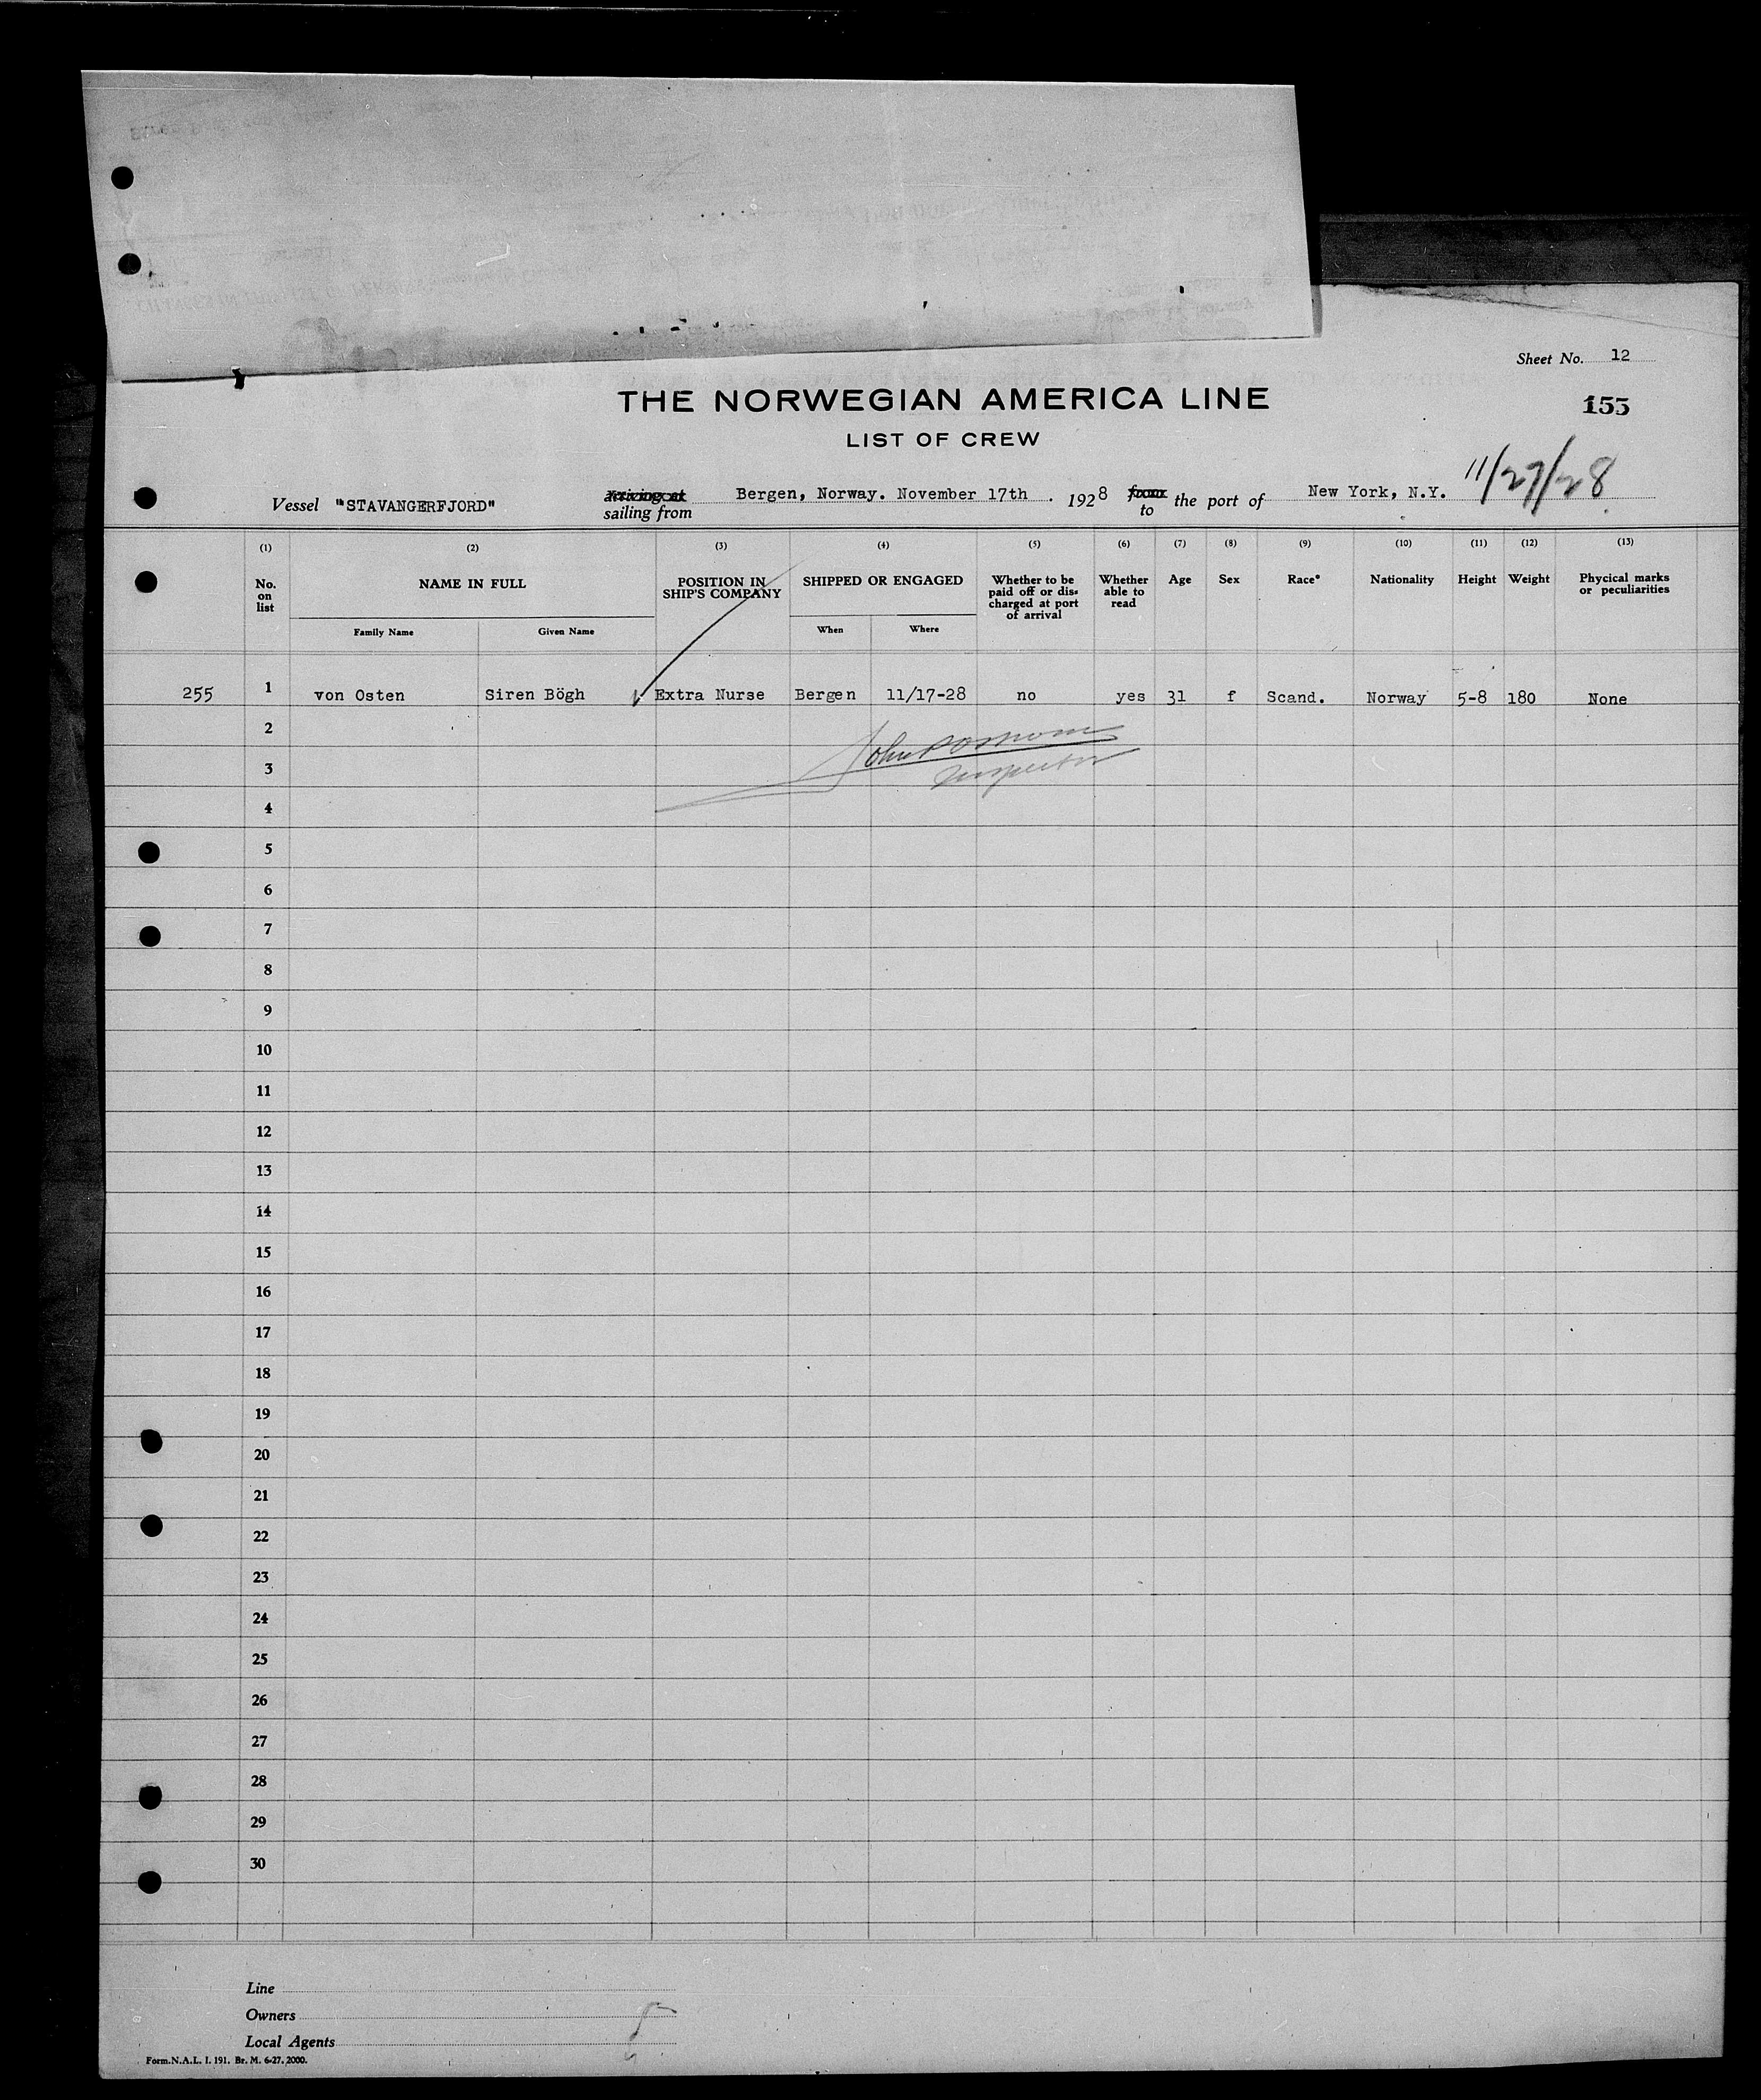 Sheet No. 12
THE NORWEGIAN AMERICA LINE
155
LIST OF CREW
Vessel "STAVANGERFJORD" arriving at sailing from Bergen, Norway. November 17th. 1928 from to the port of New York, N.Y. 11/27/28
(1) (2) (3) (4) (5) (6) (7) (8) (9) (10) (11) (12) (13)
No. on list
NAME IN FULL
Family Name
Given Name
POSITION IN SHIP'S COMPANY
SHIPPED OR ENGAGED
When
Where
Whether to be paid off or dis-charged at port of arrival
Whether able to read
Age
Sex
Race*
Nationality
Height
Weight
Phycical marks or peculiarities
255 1 von Osten Siren Bögh Extra Nurse Bergen 11/17-28 no yes 31 f Scand. Norway 5-8 180 None
2
3
Inspector
4
5
6
7
8
9
10
11
12
13
14
15
16
17
18
19
20
21
22
23
24
25
26
27
28
29
30
Line
Owners
Local Agents
Form.N.A.L. I. 191. Br. M. 6-27. 2000.